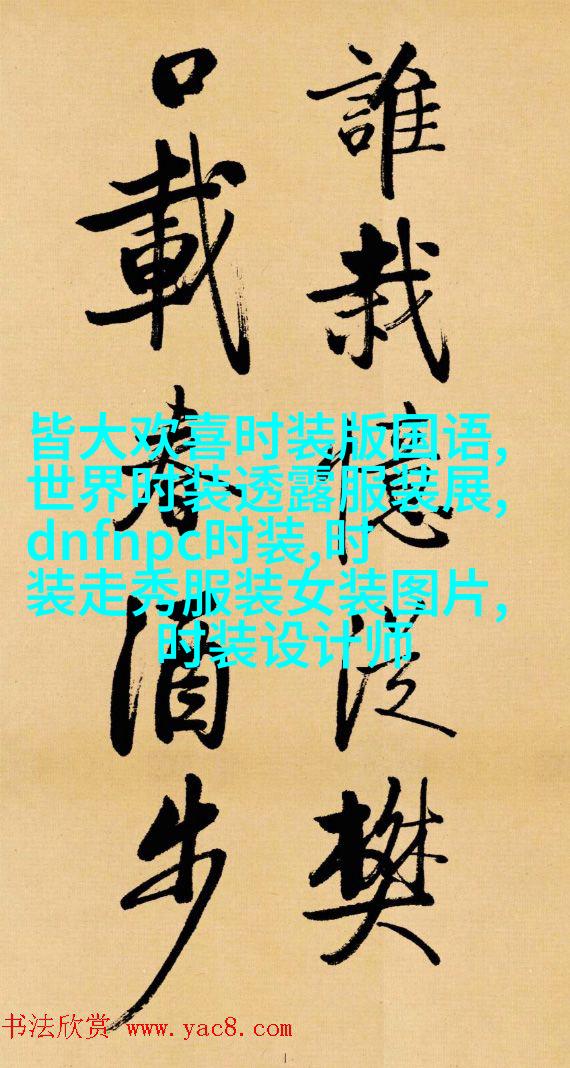 誰栽憶從樊
口載春酒步
皆大欢喜时装版国语,
世界时装透露服装展,
dnfnpc时装,时
装走秀服装女装图片,
时装设计师
书法欣赏 www.yac8.com